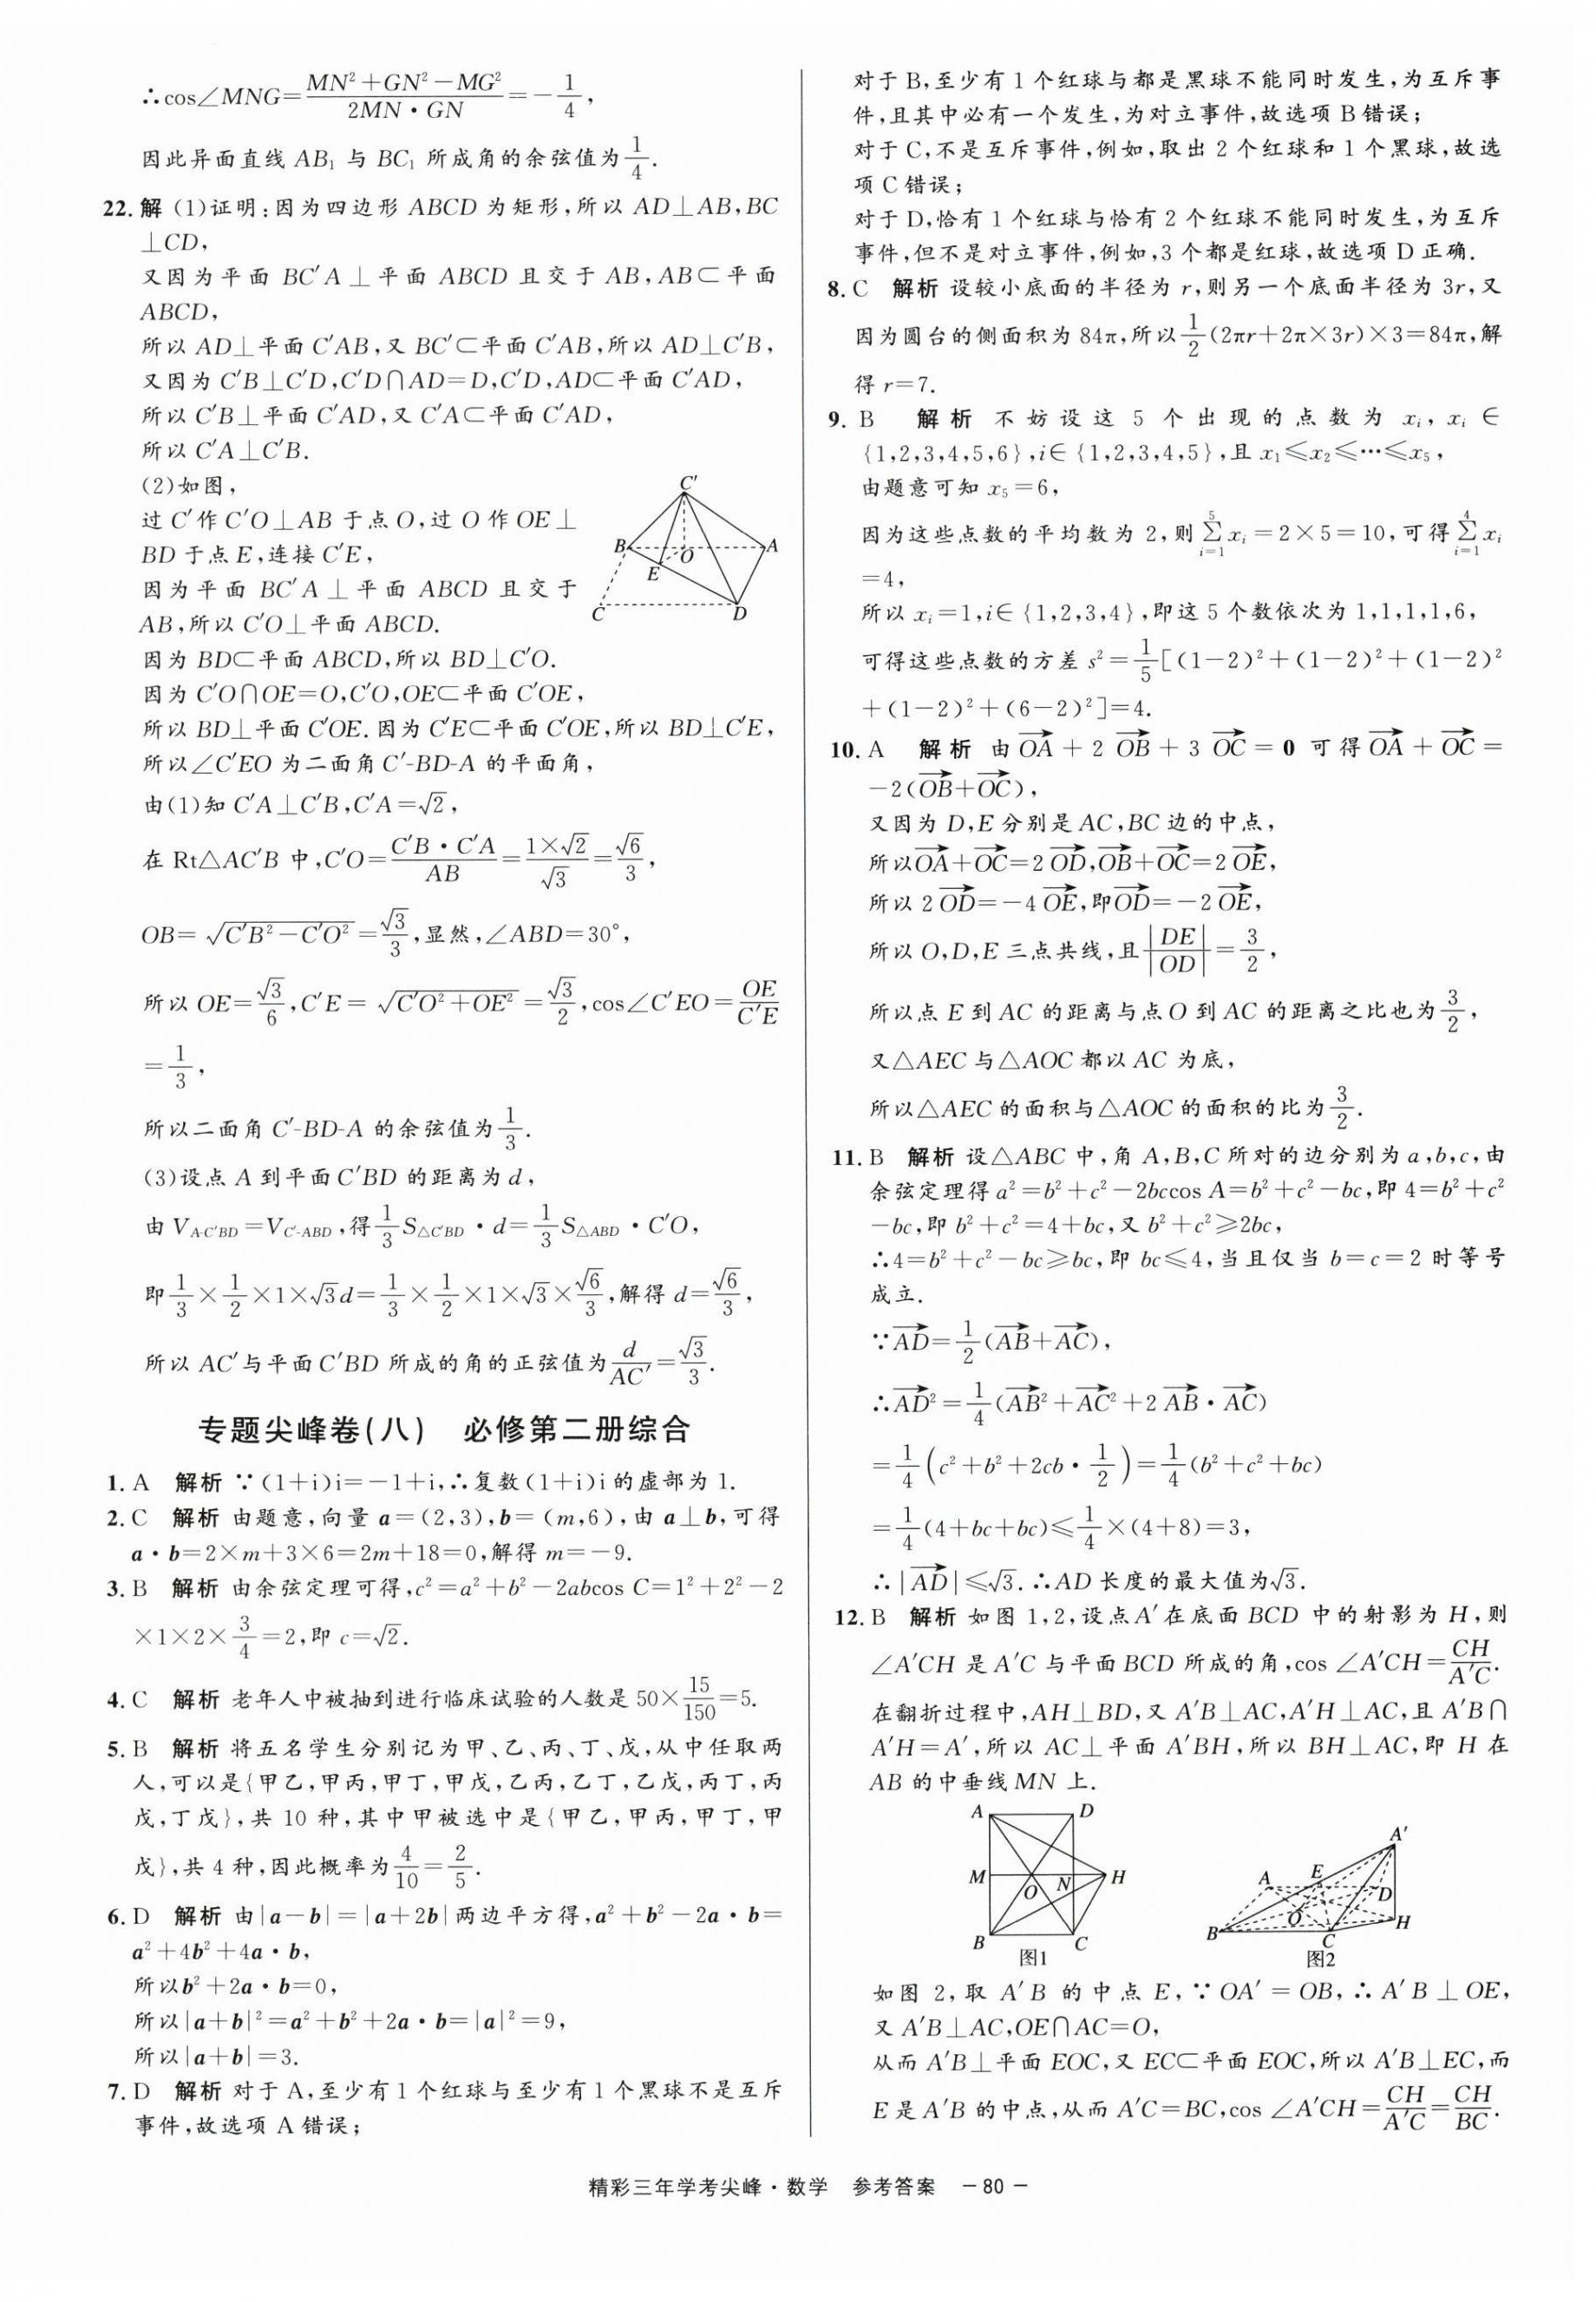 ∴cos∠MNG=(MN²+GN²−MG²)/(2MN·GN)=−1/4,
因此异面直线 AB₁ 与 BC₁ 所成角的余弦值为1/4.
22.解 (1)证明:因为四边形 ABCD 为矩形,所以 AD⊥AB,BC
⊥CD,
又因为平面 BC′A⊥平面 ABCD 且交于 AB,AB⊂平面
ABCD,
所以 AD⊥平面 C′AB,又 BC′⊂平面 C′AB,所以 AD⊥C′B,
又因为 C′B⊥C′D,C′D∩AD=D,C′D,AD⊂平面 C′AD,
所以 C′B⊥平面 C′AD,又 C′A⊂平面 C′AD,
所以 C′A⊥C′B.
(2)如图,
过 C′作 C′O⊥AB 于点 O,过 O 作 OE⊥
BD 于点 E,连接 C′E,
因为平面 BC′A⊥平面 ABCD 且交于
AB,所以 C′O⊥平面 ABCD.
C′
B
O
A
E
C
D
因为 BD⊂平面 ABCD,所以 BD⊥C′O.
因为 C′O∩OE=O,C′O,OE⊂平面 C′OE,
所以 BD⊥平面 C′OE.因为 C′E⊂平面 C′OE,所以 BD⊥C′E,
所以∠C′EO 为二面角 C′-BD-A 的平面角,
由(1)知 C′A⊥C′B,C′A=√2,
在 Rt△AC′B 中,C′O=(C′B·C′A)/AB=(1×√2)/√3=√6/3,
OB=√(C′B²−C′O²)=√3/3,显然,∠ABD=30°,
所以 OE=√3/6,C′E=√(C′O²+OE²)=√3/2,cos∠C′EO=OE/C′E
=1/3,
所以二面角 C′-BD-A 的余弦值为1/3.
(3)设点 A 到平面 C′BD 的距离为 d,
由 V_A-C′BD=V_C′-ABD,得1/3 S△C′BD·d=1/3 S△ABD·C′O,
即1/3×1/2×1×√3d=1/3×1/2×1×√3×√6/3,解得 d=√6/3,
所以 AC′与平面 C′BD 所成的角的正弦值为d/AC′=√3/3.
专题尖峰卷(八) 必修第二册综合
1.A 解析 ∵(1+i)i=−1+i,∴复数(1+i)i 的虚部为 1.
2.C 解析 由题意,向量 a=(2,3),b=(m,6),由 a⊥b,可得
a·b=2×m+3×6=2m+18=0,解得 m=−9.
3.B 解析 由余弦定理可得,c²=a²+b²−2abcos C=1²+2²−2
×1×2×3/4=2,即 c=√2.
4.C 解析 老年人中被抽到进行临床试验的人数是 50×15/150=5.
5.B 解析 将五名学生分别记为甲、乙、丙、丁、戊,从中任取两
人,可以是{甲乙,甲丙,甲丁,甲戊,乙丙,乙丁,乙戊,丙丁,丙
戊,丁戊},共 10 种,其中甲被选中是{甲乙,甲丙,甲丁,甲
戊},共 4 种,因此概率为4/10=2/5.
6.D 解析 由|a−b|=|a+2b|两边平方得,a²+b²−2a·b=
a²+4b²+4a·b,
所以b²+2a·b=0,
所以|a+b|²=a²+b²+2a·b=|a|²=9,
所以|a+b|=3.
7.D 解析 对于 A,至少有 1 个红球与至少有 1 个黑球不是互斥
事件,故选项 A 错误;
对于 B,至少有 1 个红球与都是黑球不能同时发生,为互斥事
件,且其中必有一个发生,为对立事件,故选项 B 错误;
对于 C,不是互斥事件,例如,取出 2 个红球和 1 个黑球,故选
项 C 错误;
对于 D,恰有 1 个红球与恰有 2 个红球不能同时发生,为互斥
事件,但不是对立事件,例如,3 个都是红球,故选项 D 正确.
8.C 解析 设较小底面的半径为 r,则另一个底面半径为 3r,又
因为圆台的侧面积为 84π,所以1/2(2πr+2π×3r)×3=84π,解
得 r=7.
9.B 解析 不妨设这 5 个出现的点数为 xᵢ,xᵢ∈
{1,2,3,4,5,6},i∈{1,2,3,4,5},且 x₁≤x₂≤⋯≤x₅,
由题意可知 x₅=6,
因为这些点数的平均数为 2,则 ∑(i=1→5) xᵢ=2×5=10,可得 ∑(i=1→4) xᵢ
=4,
所以 xᵢ=1,i∈{1,2,3,4},即这 5 个数依次为 1,1,1,1,6,
可得这些点数的方差 s²=1/5[(1−2)²+(1−2)²+(1−2)²
+(1−2)²+(6−2)²]=4.
10.A 解析 由 OA→+2OB→+3OC→=0 可得 OA→+OC→=
−2(OB→+OC→),
又因为 D,E 分别是 AC,BC 边的中点,
所以OA→+OC→=2OD→,OB→+OC→=2OE→,
所以 2OD→=−4OE→,即OD→=−2OE→,
所以 O,D,E 三点共线,且|DE|/|OD|=3/2,
所以点 E 到 AC 的距离与点 O 到 AC 的距离之比也为3/2,
又△AEC 与△AOC 都以 AC 为底,
所以△AEC 的面积与△AOC 的面积的比为3/2.
11.B 解析 设△ABC 中,角 A,B,C 所对的边分别为 a,b,c,由
余弦定理得 a²=b²+c²−2bccos A=b²+c²−bc,即 4=b²+c²
−bc,即 b²+c²=4+bc,又 b²+c²≥2bc,
∴4=b²+c²−bc≥bc,即 bc≤4,当且仅当 b=c=2 时等号
成立.
∵AD→=1/2(AB→+AC→),
∴AD→²=1/4(AB→²+AC→²+2AB→·AC→)
=1/4(c²+b²+2cb·1/2)=1/4(b²+c²+bc)
=1/4(4+bc+bc)≤1/4×(4+8)=3,
∴|AD→|≤√3.∴AD 长度的最大值为√3.
12.B 解析 如图 1,2,设点A′在底面 BCD 中的射影为 H,则
∠A′CH 是 A′C 与平面 BCD 所成的角,cos ∠A′CH=CH/A′C.
在翻折过程中,AH⊥BD,又 A′B⊥AC,A′H⊥AC,且 A′B∩
A′H=A′,所以 AC⊥平面 A′BH,所以 BH⊥AC,即 H 在
AB 的中垂线 MN 上.
A
D
M
O
N
H
B
C
图1
A′
A
E
D
O
H
B
C
图2
如图 2,取 A′B 的中点 E,∵OA′=OB,∴A′B⊥OE,
又 A′B⊥AC,OE∩AC=O,
从而 A′B⊥平面 EOC,又 EC⊂平面 EOC,所以 A′B⊥EC,而
E 是 A′B 的中点,从而 A′C=BC,cos ∠A′CH=CH/A′C=CH/BC.
精彩三年学考尖峰·数学 参考答案 −80−